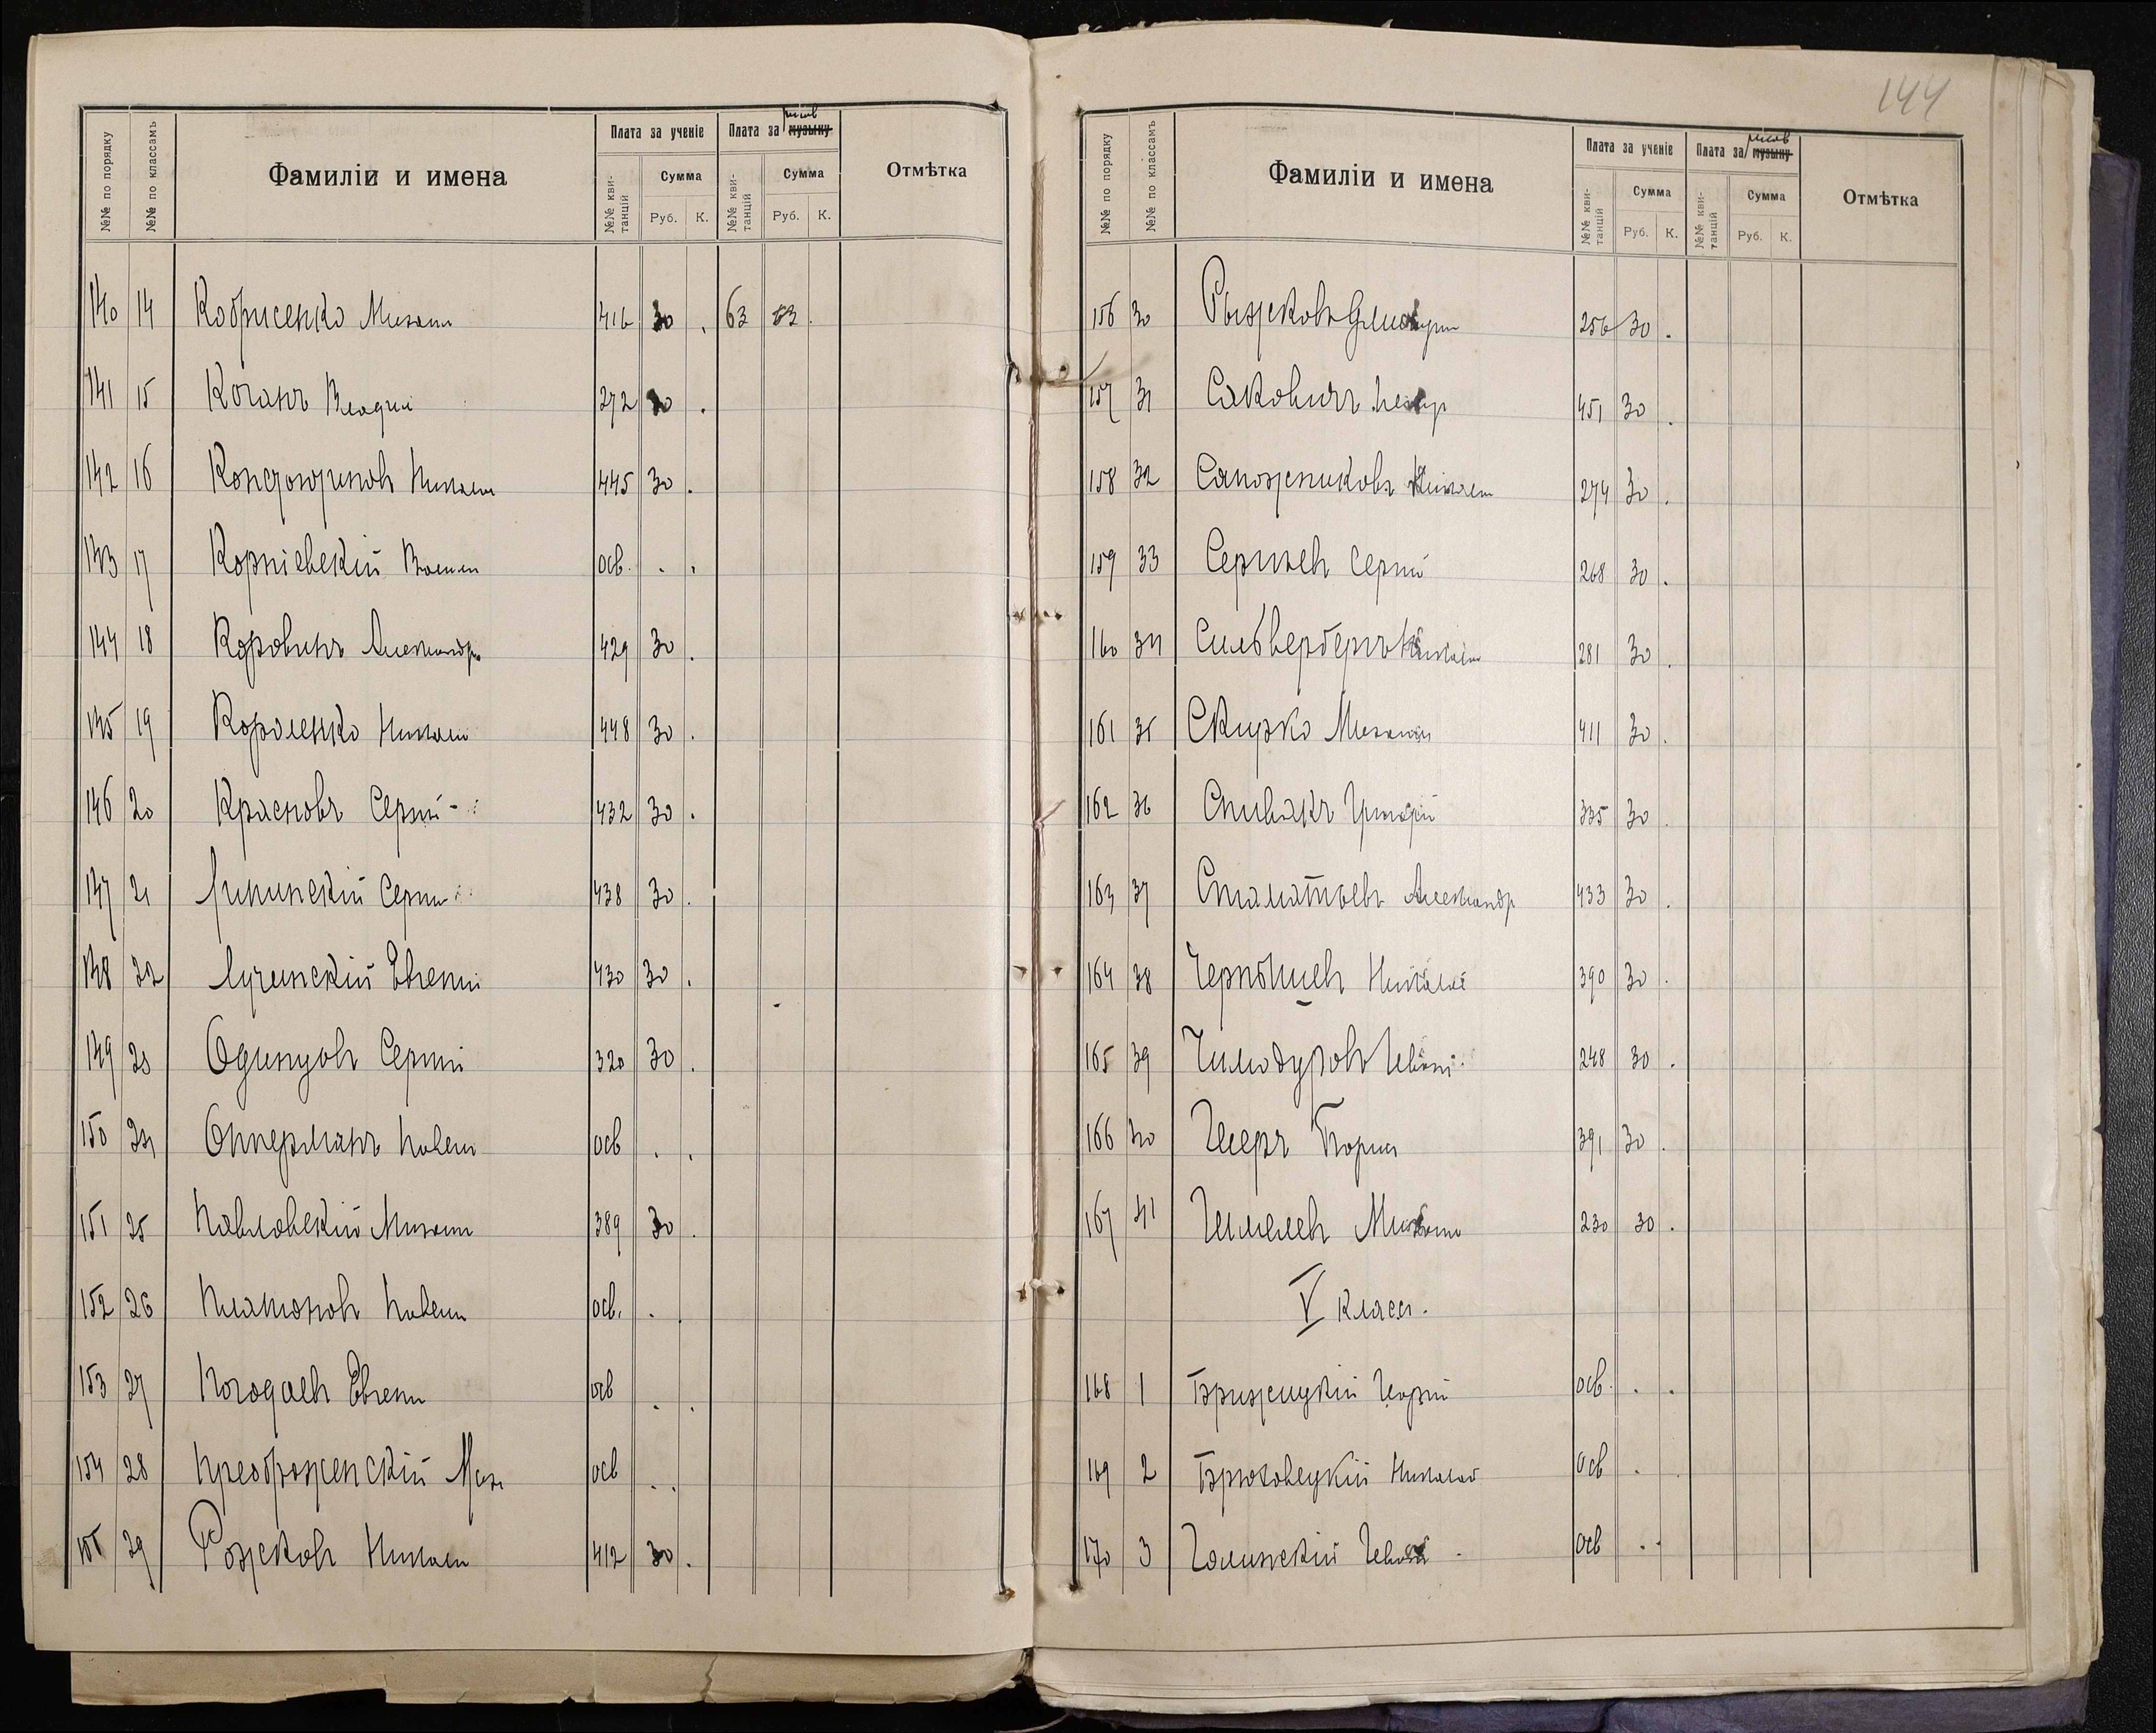 144
№№ по порядку №№ по классамъ Фамиліи и имена Плата за ученіе Плата за музыку Отмѣтка
№№ кви-танцій Сумма №№ кви-танцій Сумма
Руб. К. Руб. К.
140 14 Кобрисенко Михаил 416 30 . 63 .
141 15 Коганъ Владим 272 30 .
142 16 Константинов Николай 445 30 .
143 17 Корніевскій Васил осв. . .
144 18 Коровинъ Александръ 429 30 .
145 19 Короленко Николай 448 30 .
146 20 Красновъ Сергѣй 432 30 .
147 21 Липинскій Сергѣй 438 30 .
148 22 Лучинскій Евгеній 430 30 .
149 23 Одинцов Сергѣй 320 30 .
150 24 Опперманъ Павел осв . .
151 25 Павловскій Михаил 389 30 .
152 26 Платонов Павел осв. . .
153 27 Погодаев Евген осв . .
154 28 Преображенскій осв . .
155 29 Рожков Николай 412 30 .
№№ по порядку №№ по классамъ Фамиліи и имена Плата за ученіе Плата за музыку Отмѣтка
№№ кви-танцій Сумма №№ кви-танцій Сумма
Руб. К. Руб. К.
156 30 Рыжковъ Дмитрій 256 30 .
157 31 Саковичъ Петр 451 30 .
158 32 Сапожниковъ Николай 274 30 .
159 33 Сергѣев Сергѣй 268 30 .
160 34 Сильвербергъ Николай 281 30 .
161 35 Скирко Михаил 411 30 .
162 36 Спивакъ Григорій 335 30 .
163 37 Стаматьевъ Александр 433 30 .
164 38 Чернышев Николай 390 30 .
165 39 Чимодуров Иван 248 30 .
166 40 Шеръ Борис 391 30 .
167 41 Шмелев Михаил 230 30 .
V класс.
168 1 Бржицкій Георгій осв. . .
169 2 Брюховецкій Николай осв .
170 3 Галинскій осв . .